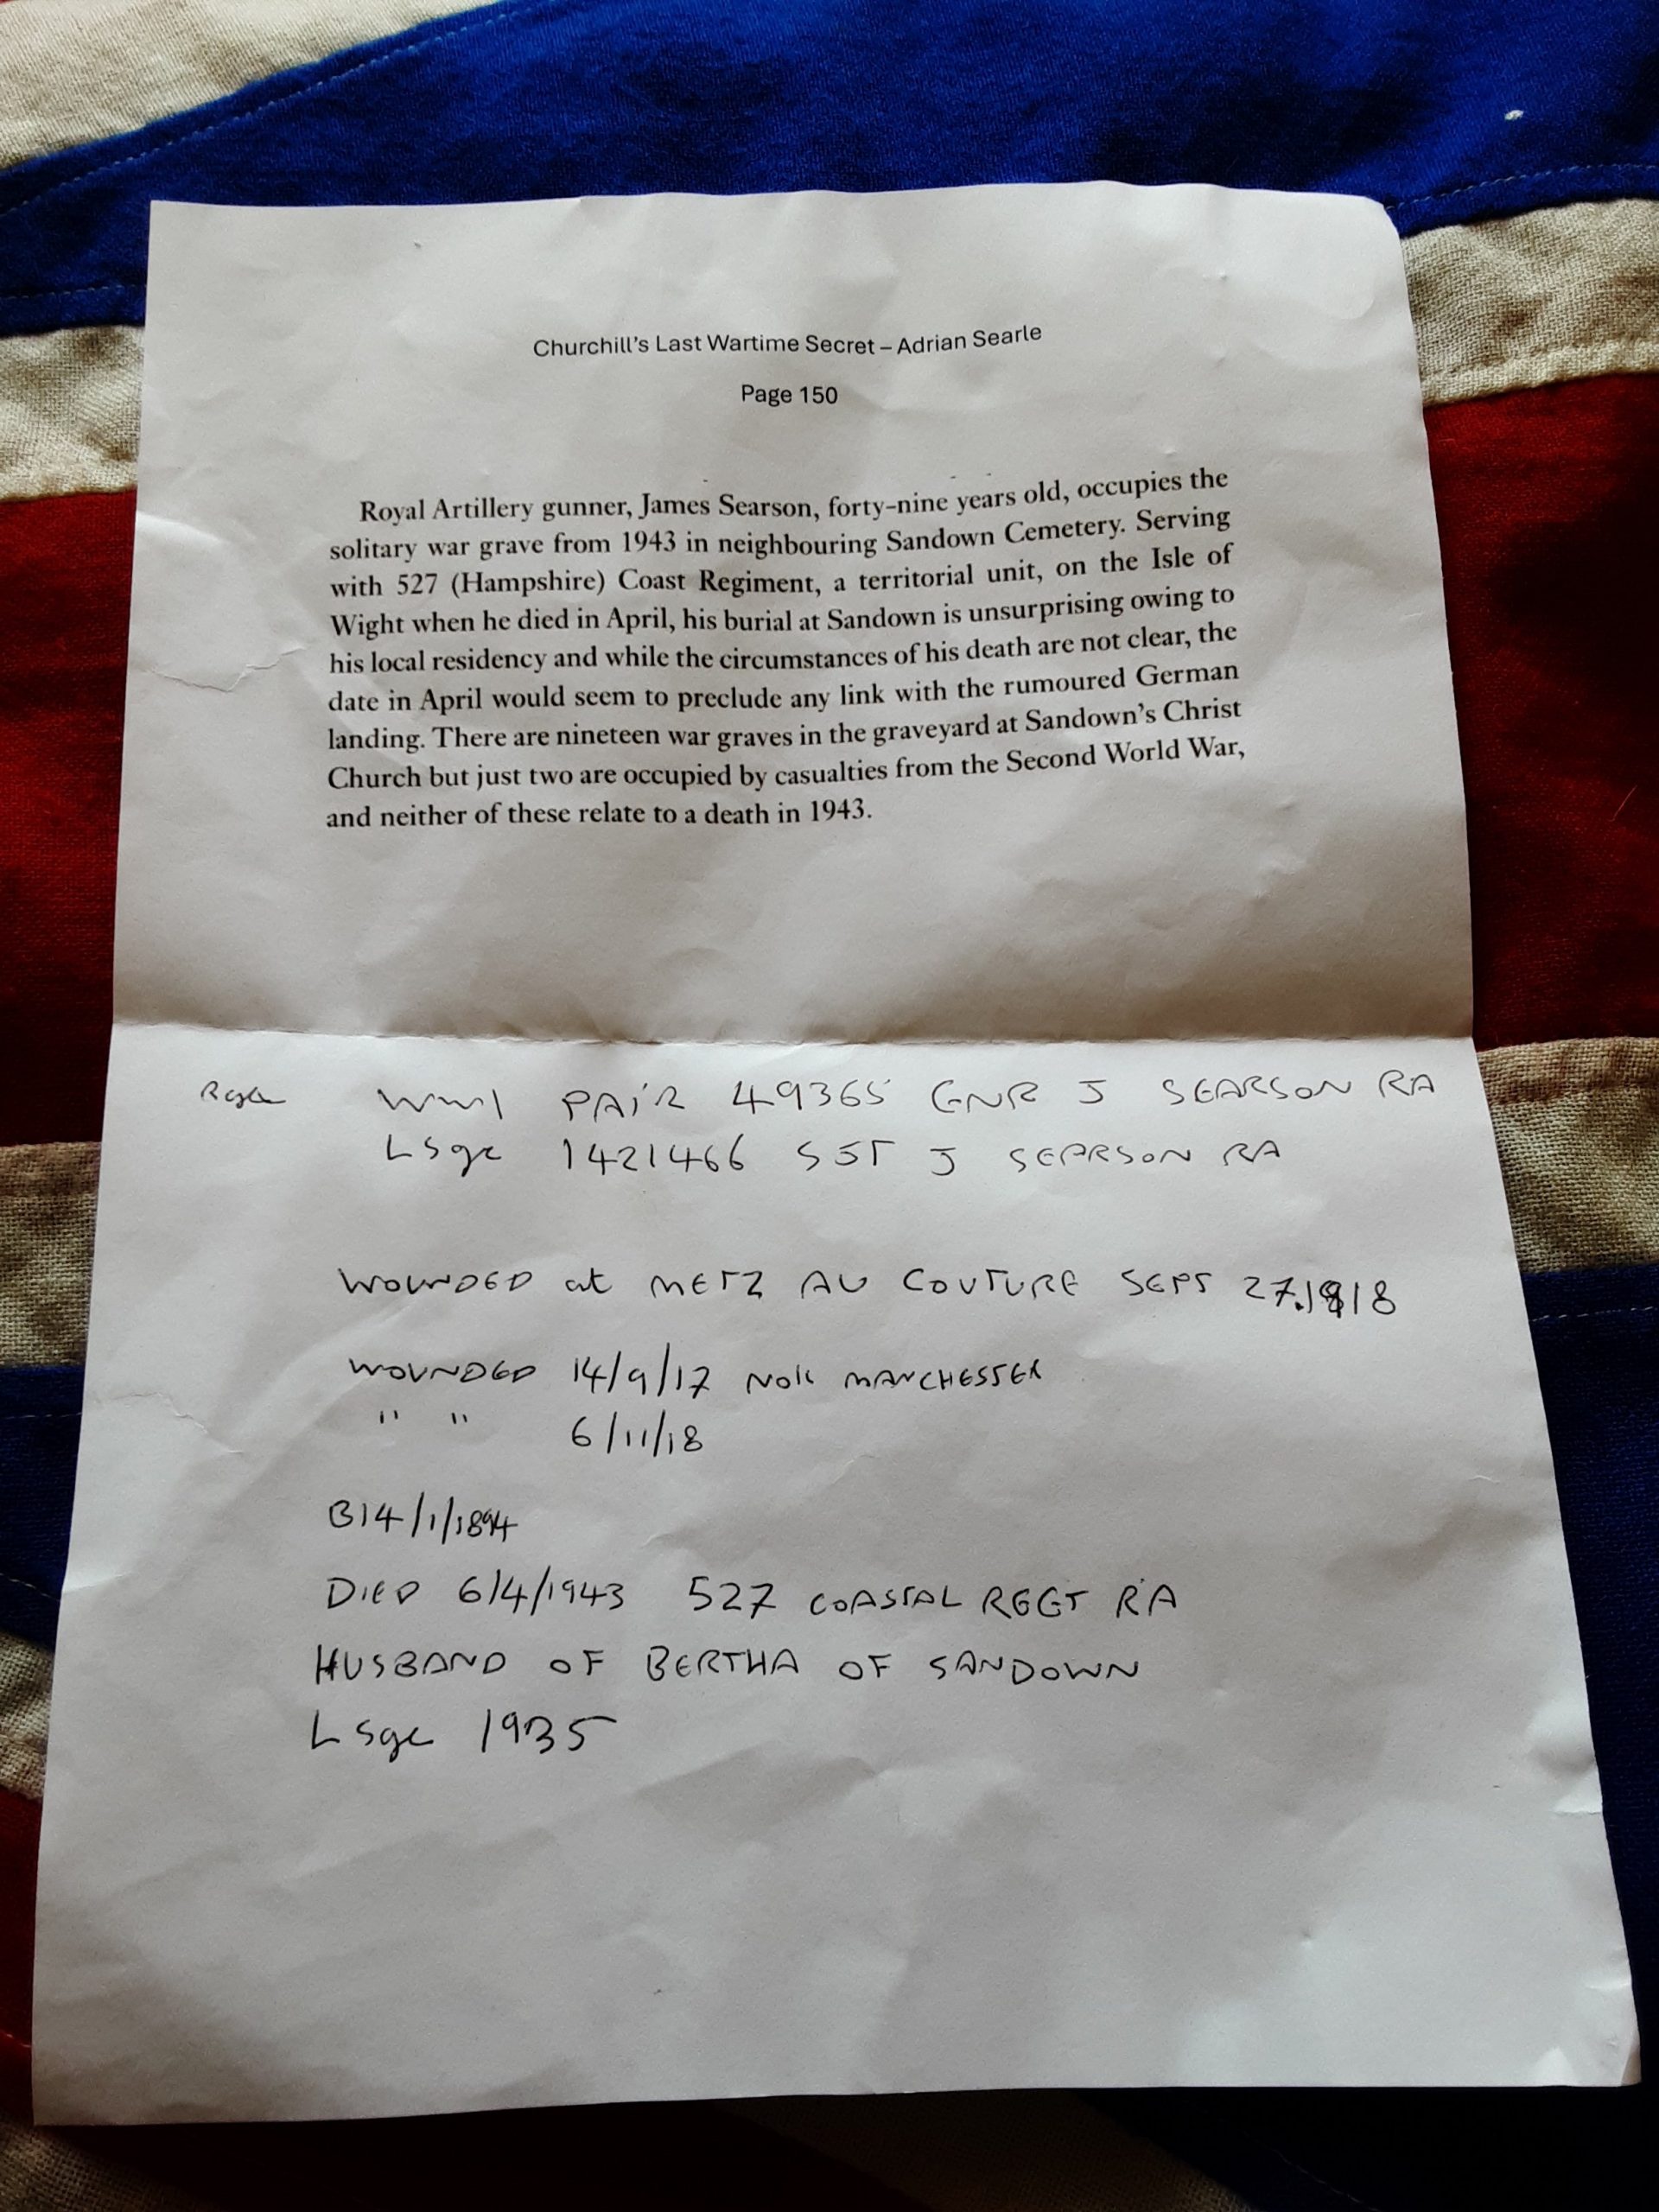 Churchill's Last Wartime Secret – Adrian Searle
Page 150
Royal Artillery gunner, James Searson, forty-nine years old, occupies the
solitary war grave from 1943 in neighbouring Sandown Cemetery. Serving
with 527 (Hampshire) Coast Regiment, a territorial unit, on the Isle of
Wight when he died in April, his burial at Sandown is unsurprising owing to
his local residency and while the circumstances of his death are not clear, the
date in April would seem to preclude any link with the rumoured German
landing. There are nineteen war graves in the graveyard at Sandown's Christ
Church but just two are occupied by casualties from the Second World War,
and neither of these relate to a death in 1943.
WW1 PAIR 49365 GNR J SEARSON RA
LSgc 1421466 SJT J SEARSON RA
WOUNDED at METZ AU COUTURE SEPT 27.1918
WOUNDED 14/9/17 NOK MANCHESTER
" " 6/11/18
B14/1/1894
DIED 6/4/1943 527 COASTAL REGT RA
HUSBAND OF BERTHA OF SANDOWN
LSgc 1935